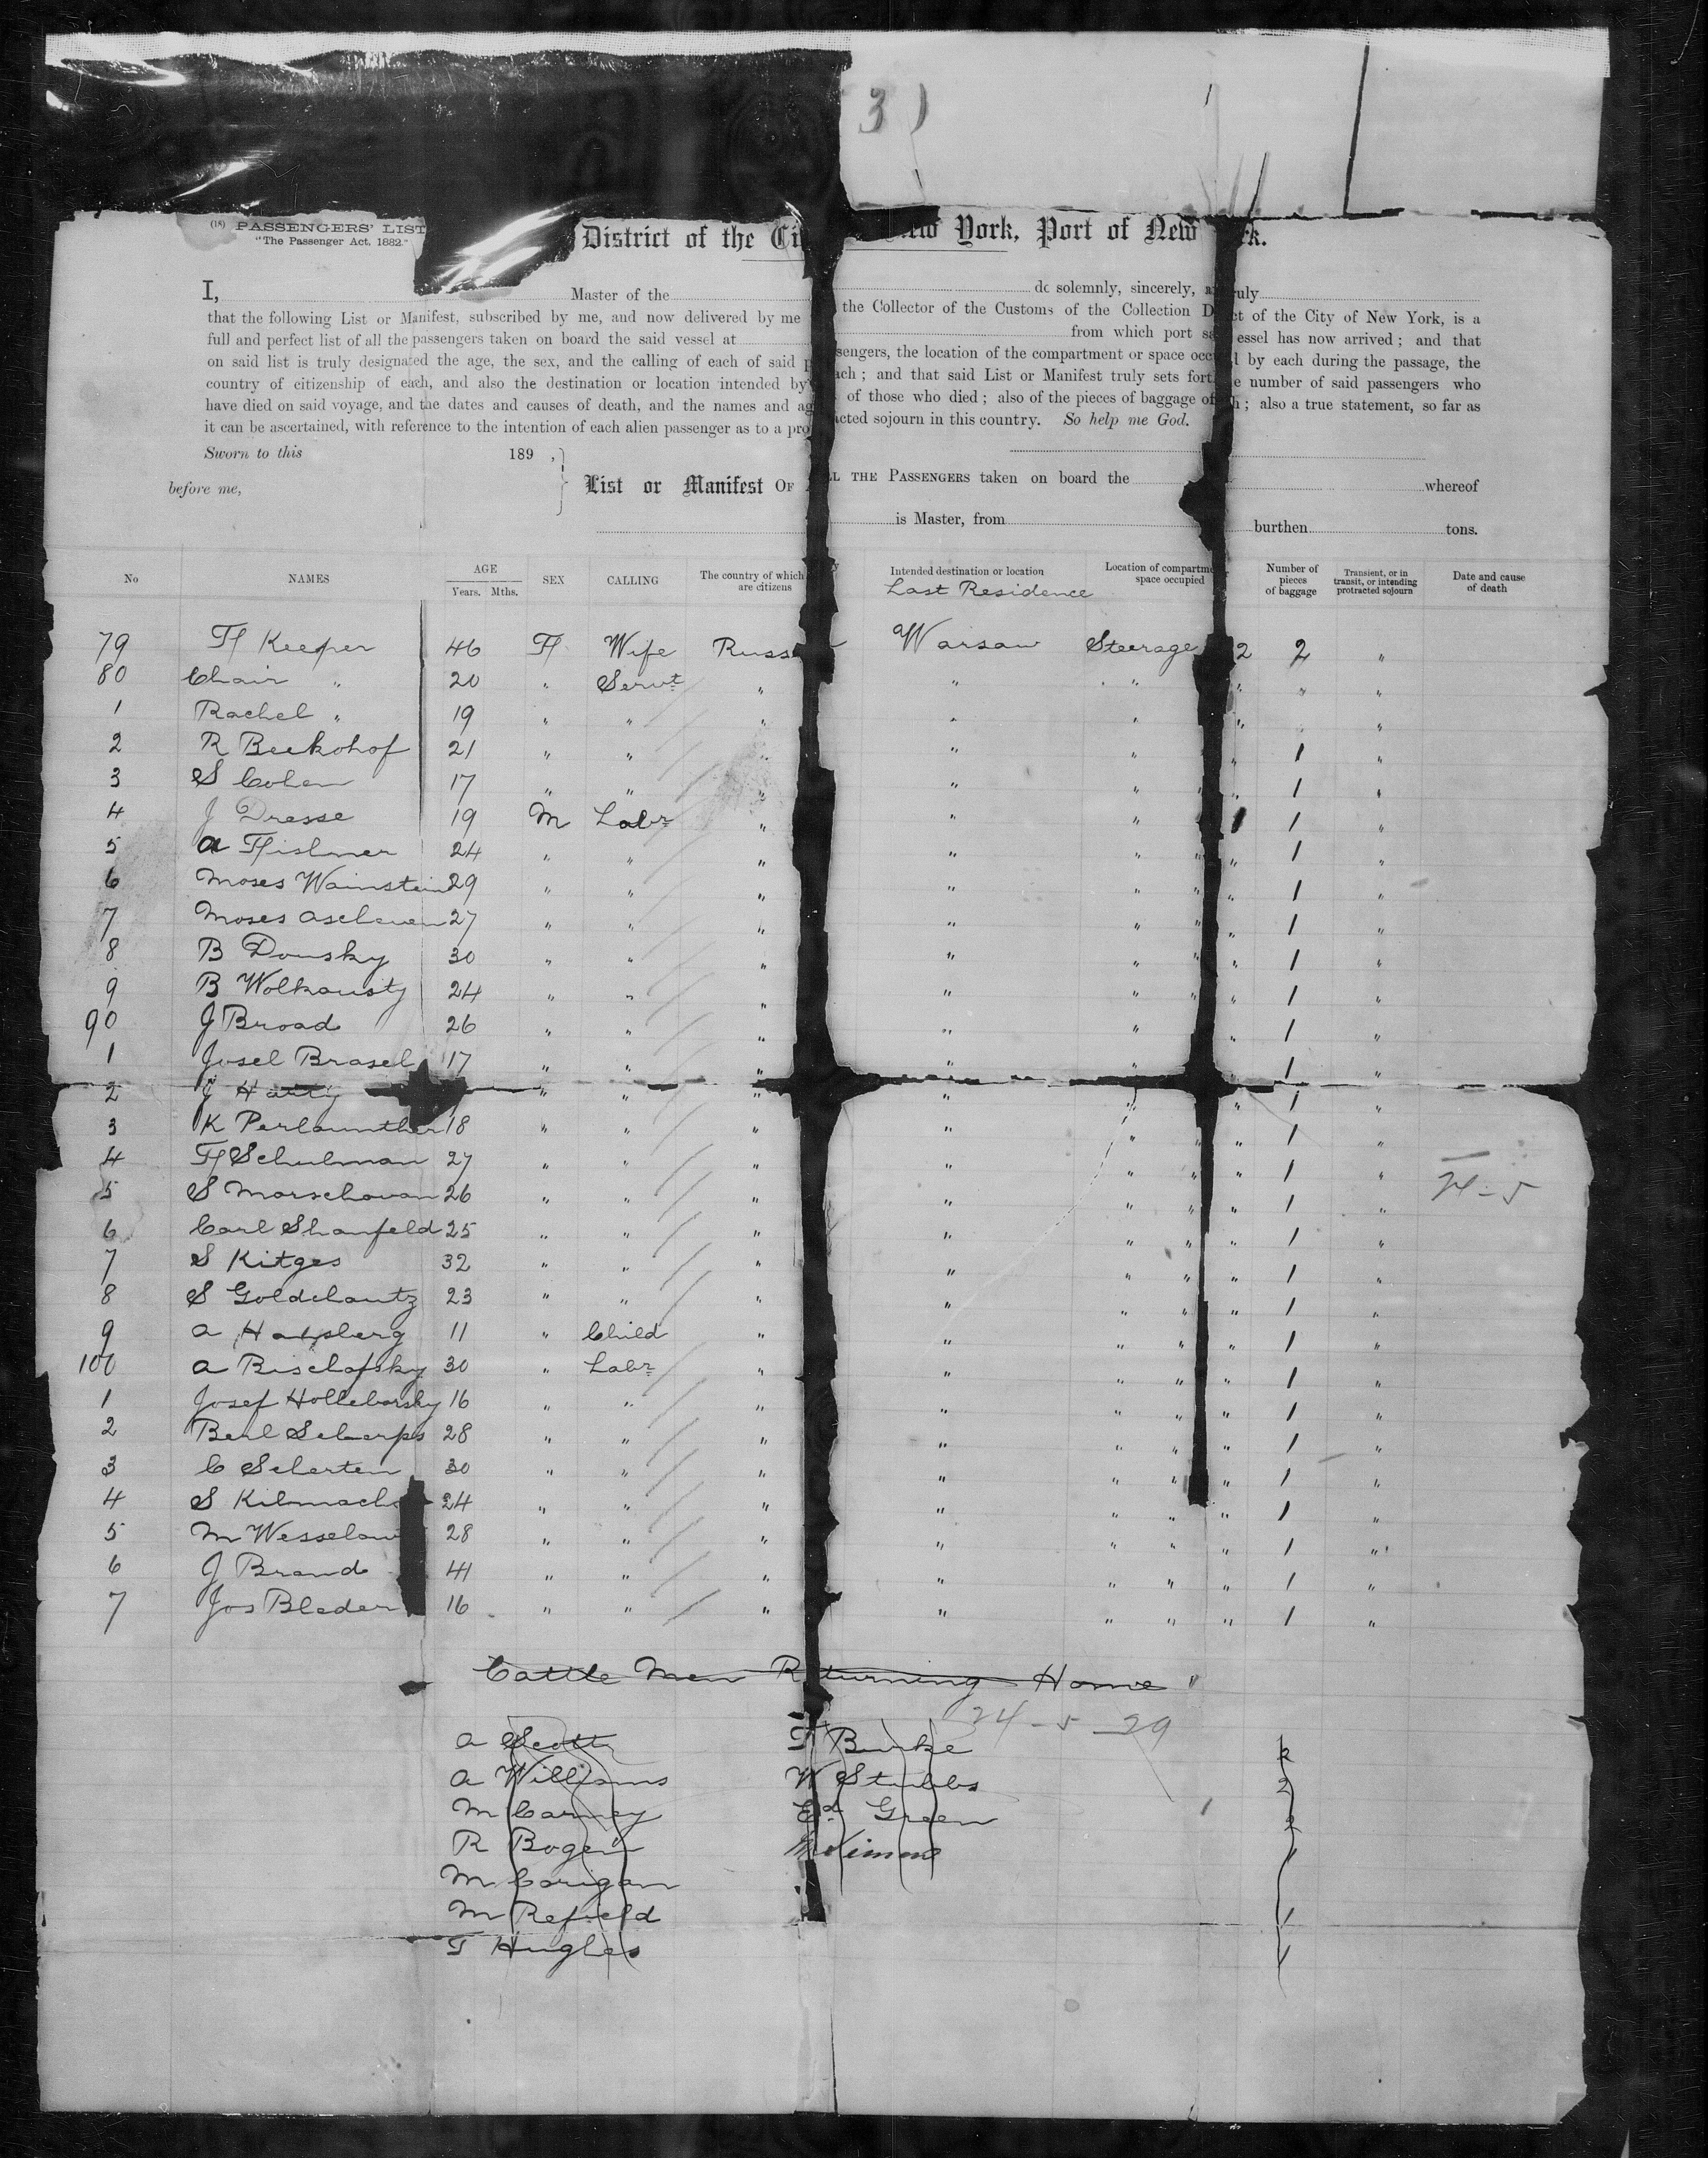 3)
(18) PASSENGERS' LIST
"The Passenger Act, 1882."
District of the Ci New York, Port of New rk.
I, Master of the do solemnly, sincerely, ruly
that the following List or Manifest, subscribed by me, and now delivered by me the Collector of the Customs of the Collection D ct of the City of New York, is a
full and perfect list of all the passengers taken on board the said vessel at from which port sa essel has now arrived; and that
on said list is truly designated the age, the sex, and the calling of each of said p sengers, the location of the compartment or space occ l by each during the passage, the
country of citizenship of each, and also the destination or location intended by ach; and that said List or Manifest truly sets fort e number of said passengers who
have died on said voyage, and the dates and causes of death, and the names and ag of those who died; also of the pieces of baggage of h; also a true statement, so far as
it can be ascertained, with reference to the intention of each alien passenger as to a pro acted sojourn in this country. So help me God.
Sworn to this 189 ,
before me,
List or Manifest OF ALL THE PASSENGERS taken on board the whereof
is Master, from burthen tons.
No NAMES AGE Years. Mths. SEX CALLING The country of which are citizens Intended destination or location Last Residence Location of compartme space occupied Number of pieces of baggage Transient, or in transit, or intending protracted sojourn Date and cause of death
79 H Keeper 46 F Wife Russ Warsaw Steerage 2 2 "
80 Chair " 20 " Servt " " " " " "
1 Rachel " 19 " " " " " " "
2 R Beekohof 21 " " " " " " 1 "
3 S Cohen 17 " " " " " " 1 "
4 J Dresse 19 M Labr " " " 1 1 "
5 A Fishner 24 " " " " " " " 1 "
6 Moses Wainstein 29 " " " " " " " 1 "
7 Moses 27 " " " " " " " 1 "
8 B Donsky 30 " " " " " " " 1 "
9 B 24 " " " " " " " 1 "
90 J Broad 26 " " " " " " 1 "
1 Josel Brasel 17 " " " " " 1 "
2 J Hatty " " " " " " 1 "
3 K 18 " " " " " " " 1 "
4 H Schulman 27 " " " " " " " 1 "
24 - 5
5 S Marschovan 26 " " " " " " " 1 "
6 Carl Shanfeld 25 " " " " " " " 1 "
7 S Kitges 32 " " " " " " " 1 "
8 S Goldchantz 23 " " " " " " " 1 "
9 A 11 " Child " " " " " 1 "
100 A Bischofsky 30 " Labr " " " " " 1 "
1 Josef Hollebarsky 16 " " " " " " " 1 "
2 Berl 28 " " " " " " " 1 "
3 C Scherten 30 " " " " " " " 1 "
4 S 24 " " " " " " " 1 "
5 M 28 " " " " " " " 1 "
6 J Brand 41 " " " " " " " 1 "
7 Jos Bleder 16 " " " " " " " 1 "
Cattle Men Returning Home
24 - 5 - 29
A Scott T Burke 2
A Williams W Stubbs 2
M Carney Ed Green 2
R Bogen 1
M Corigan
M Refield 1
T Hughes 1